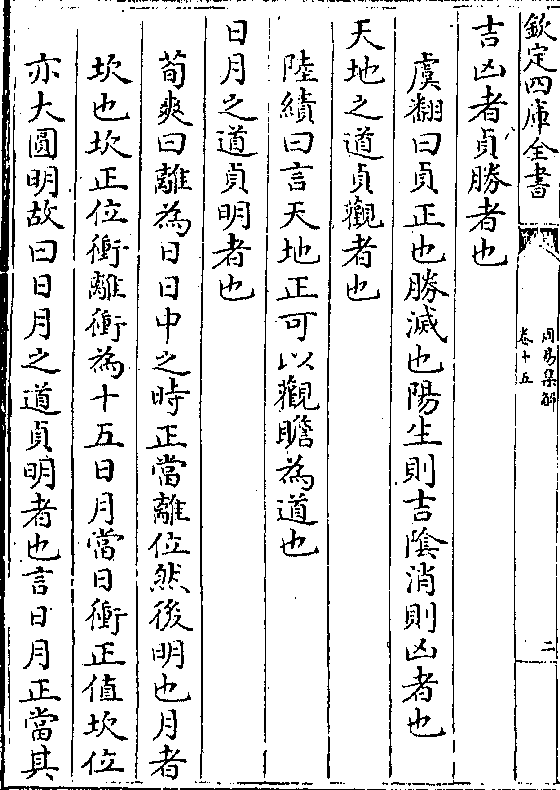 欽定四庫全書
周易集解
卷十五
二
吉凶者貞勝者也
虞翻曰貞正也勝滅也陽生則吉陰消則凶者也
天地之道貞觀者也
陸績曰言天地正可以觀瞻為道也
日月之道貞明者也
荀爽曰離為日日中之時正當離位然後明也月者
坎也坎正位衝離衝為十五日月當日衝正值坎位
亦大圓明故曰日月之道貞明者也言日月正當其